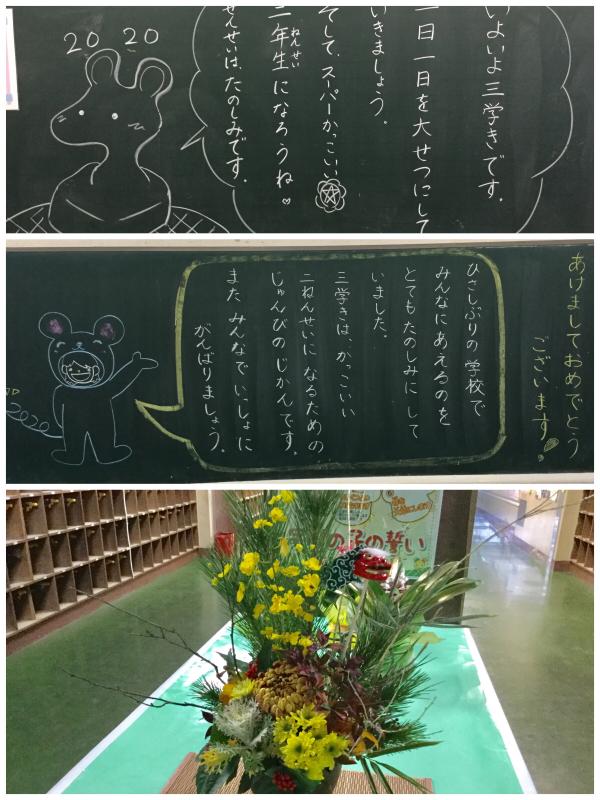 20 20
いよいよ三学きです。
一日一日を大せつにして
いきましょう。
そして、スーパーかっこいい
二年生になろうね♡
ねんせい
せんせいは、たのしみです。
あけましておめでとう
ございます!
ひさしぶりの学校で
みんなにあえるのを
とてもたのしみにして
いました。
三学きは、かっこいい
二ねんせいになるための
じゅんびのじかんです。
またみんなでいっしょに
がんばりましょう。
の子の誓い